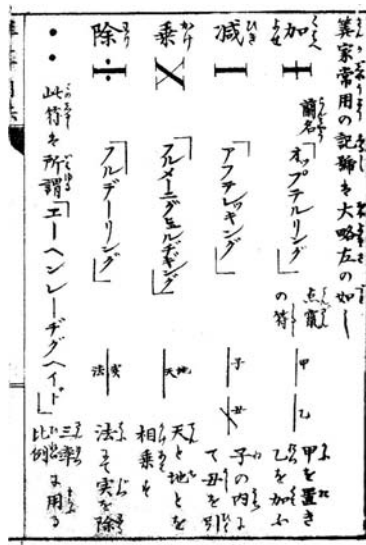 算家常用の記号を大略左の如し
加 ＋ 蘭名「オップテルリング」 点竄の符 甲｜乙 甲を置き乙を加ふ
減 － 「アフテレッキング」 子 母 子の内にて母を引
乗 × 「フルメーニグヒュルヂギング」 天｜地 天と地とを相乗す
除 ÷ 「フルデーリング」 法｜実 法にて実を除
・・ 此符を所謂「エーヘンレーヂグヘイド」 三率比例に用る